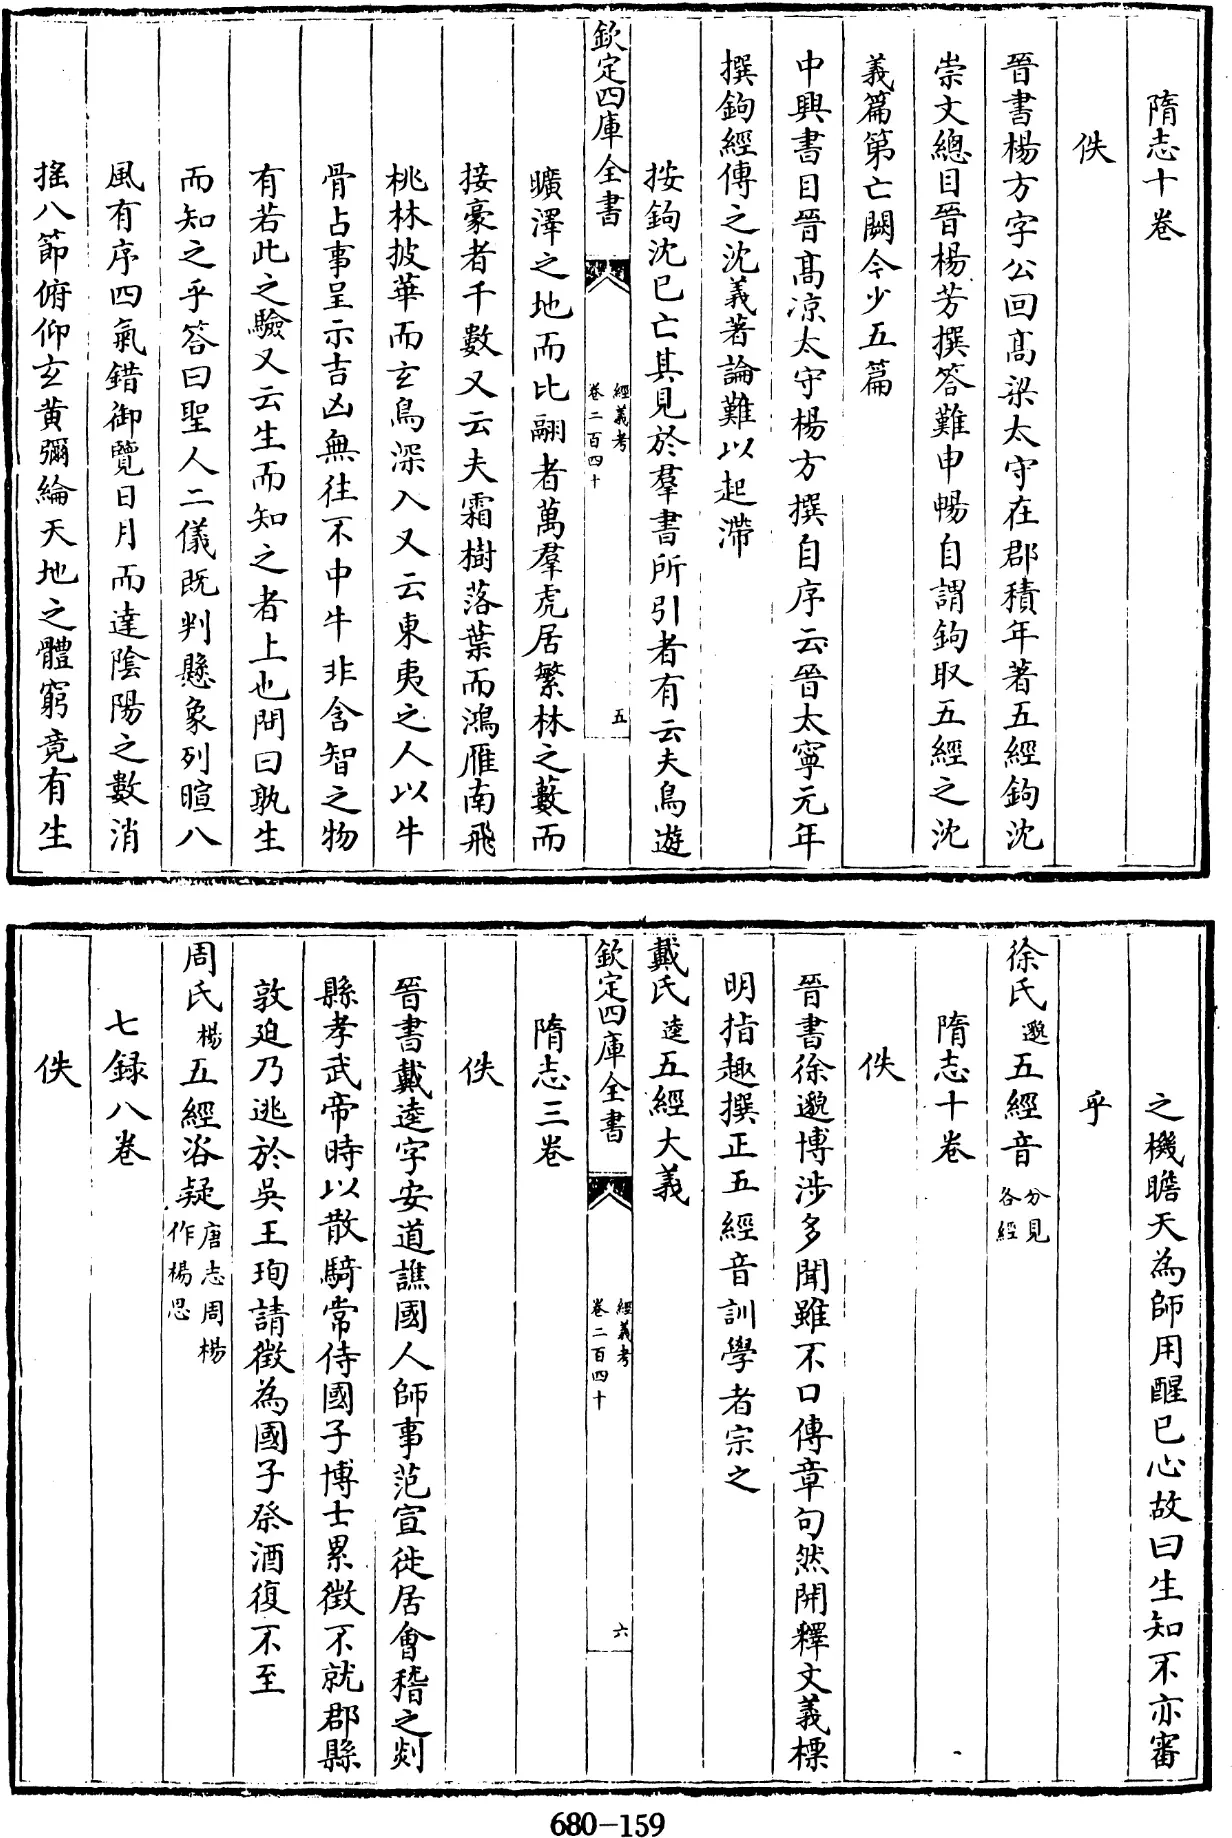 隋志十卷
佚
晉書楊方字公回髙梁太守在郡積年著五經鉤沈
崇文總目晉楊芳撰答難申暢自謂鉤取五經之沈
義篇第亡闕今少五篇
中興書目晉髙凉太守楊方撰自序云晉太寧元年
撰鉤經傳之沈義著論難以起滯
按鉤沈已亡其見於羣書所引者有云夫鳥遊
欽定四庫全書
經義考
卷二百四十
五
曠澤之地而比翮者萬羣虎居繁林之藪而
接豪者千數又云夫霜樹落葉而鴻雁南飛
桃林披華而玄鳥深入又云東夷之人以牛
骨占事呈示吉凶無往不中牛非含智之物
有若此之驗又云生而知之者上也問曰孰生
而知之乎答曰聖人二儀既判懸象列暄八
風有序四氣錯御覽日月而達陰陽之數消
揺八節俯仰玄黃彌綸天地之體窮竟有生
之機瞻天為師用醒已心故曰生知不亦審
乎
徐氏邈五經音分見各經
隋志十卷
佚
晉書徐邈博涉多聞雖不口傳章句然開釋文義標
明指趣撰正五經音訓學者宗之
戴氏逵五經大義
欽定四庫全書
經義考
卷二百四十
六
隋志三卷
佚
晉書戴逵字安道譙國人師事范宣徙居會稽之剡
縣孝武帝時以散騎常侍國子博士累徴不就郡縣
敦迫乃逃於吳王珣請徴為國子祭酒復不至
周氏楊五經咨疑唐志周楊作楊思
七録八卷
佚
680-159